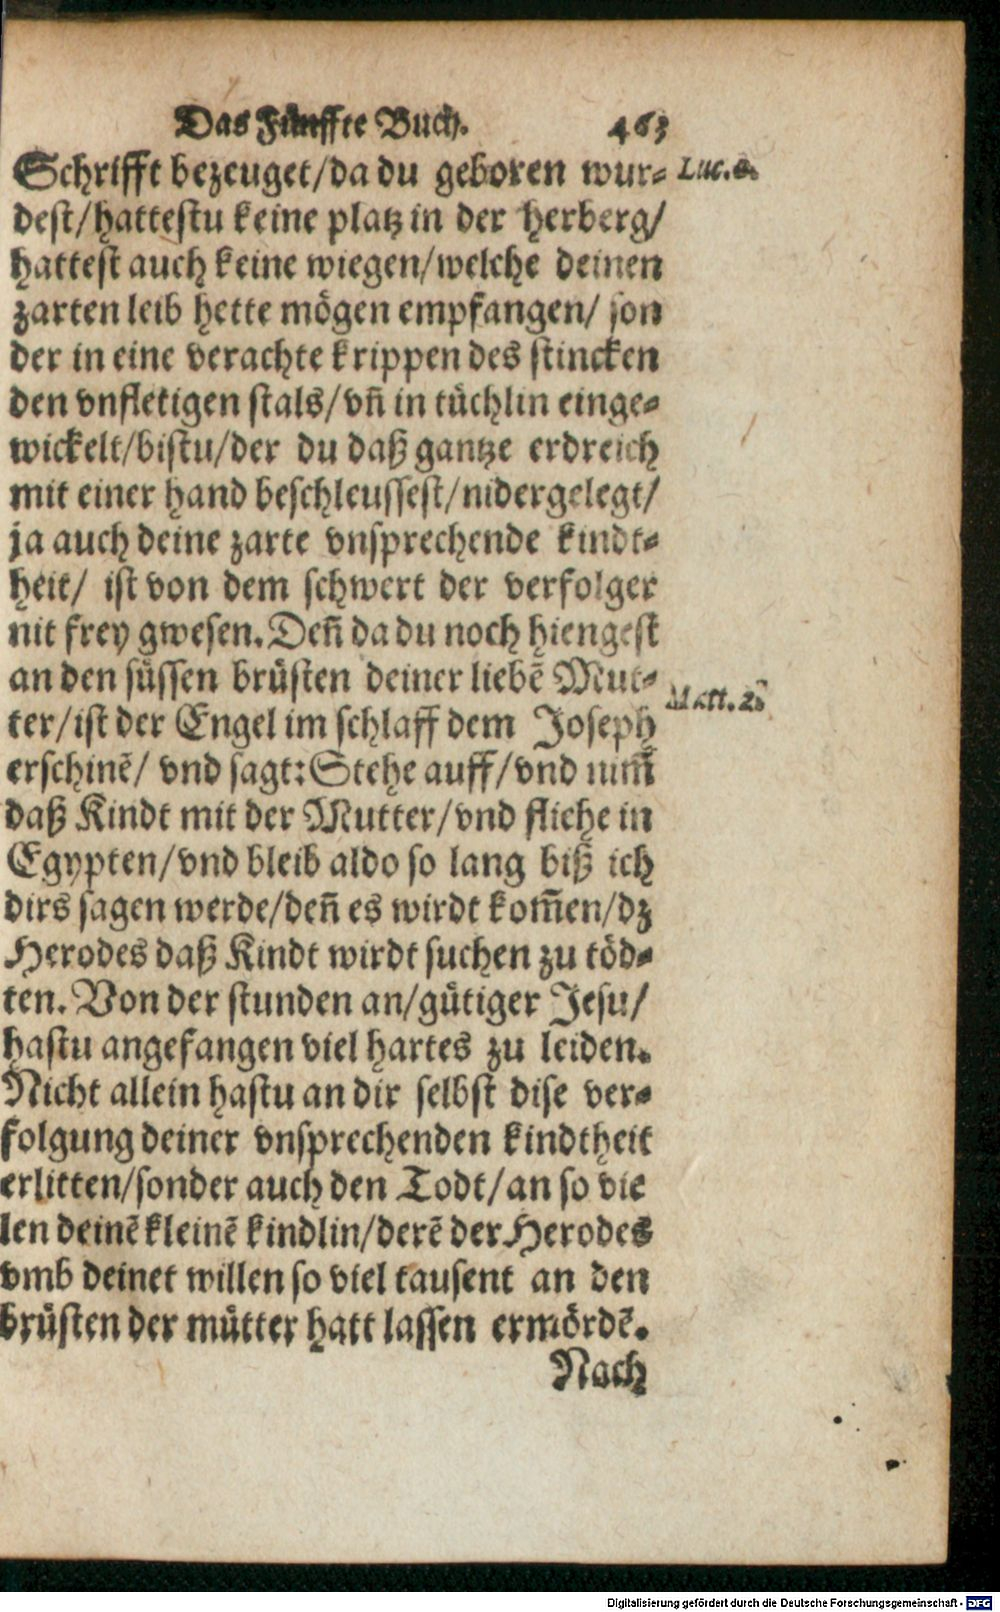 Das Fünffte Buch. 463
Schrifft bezeuget/da du geboren wur-
Luc. 2.
dest/hattestu keine platz in der herberg/
hattest auch keine wiegen/welche deinen
zarten leib hette mögen empfangen/ son
der in eine verachte krippen des stincken
den vnfletigen stals/vn̄ in tüchlin einge-
wickelt/bistu/der du daß gantze erdreich
mit einer hand beschleussest/nidergelegt/
ja auch deine zarte vnsprechende kindt-
heit/ ist von dem schwert der verfolger
nit frey gwesen. Den̄ da du noch hiengest
an den süssen brüsten deiner liebē Mut-
Matt. 2.
ter/ist der Engel im schlaff dem Joseph
erschinē/ vnd sagt: Stehe auff/vnd nim̄
daß Kindt mit der Mutter/vnd fliehe in
Egypten/vnd bleib aldo so lang biß ich
dirs sagen werde/den̄ es wirdt kom̄en/dz
Herodes daß Kindt wirdt suchen zu töd-
ten. Von der stunden an/gütiger Jesu/
hastu angefangen viel hartes zu leiden.
Nicht allein hastu an dir selbst dise ver-
folgung deiner vnsprechenden kindtheit
erlitten/sonder auch den Todt/an so vie
len deinē kleinē kindlin/derē der Herodes
vmb deinet willen so viel tausent an den
brüsten der mütter hatt lassen ermördē.
Nach
Digitalisierung gefördert durch die Deutsche Forschungsgemeinschaft - DFG